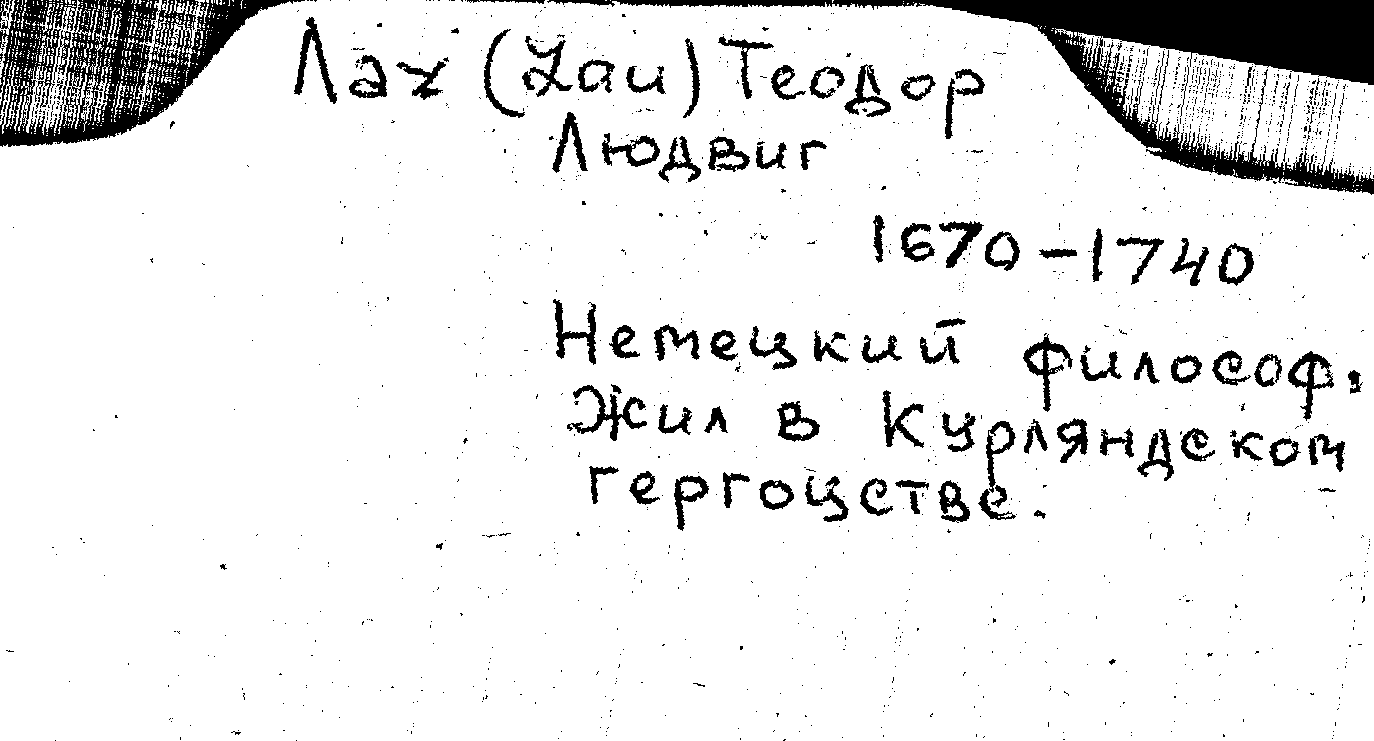 Лах (Лаи) Теодор
Людвиг
1670-1740
Немецкий философ.
Жил в Курляндском
гергоцстве.